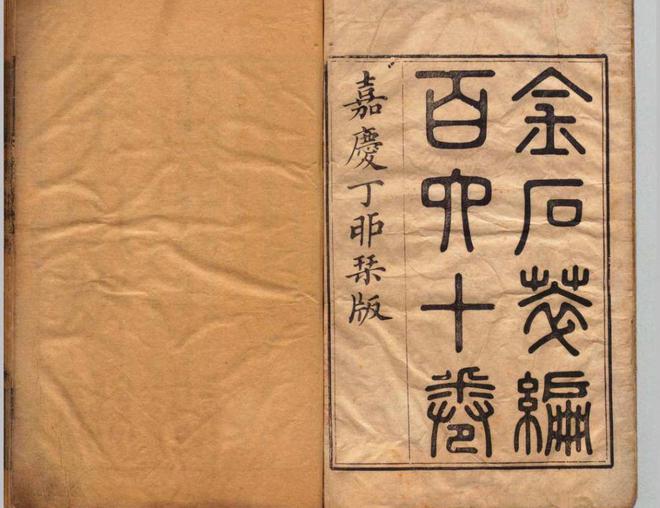 金石萃編
百六十卷
嘉慶丁卯栞版